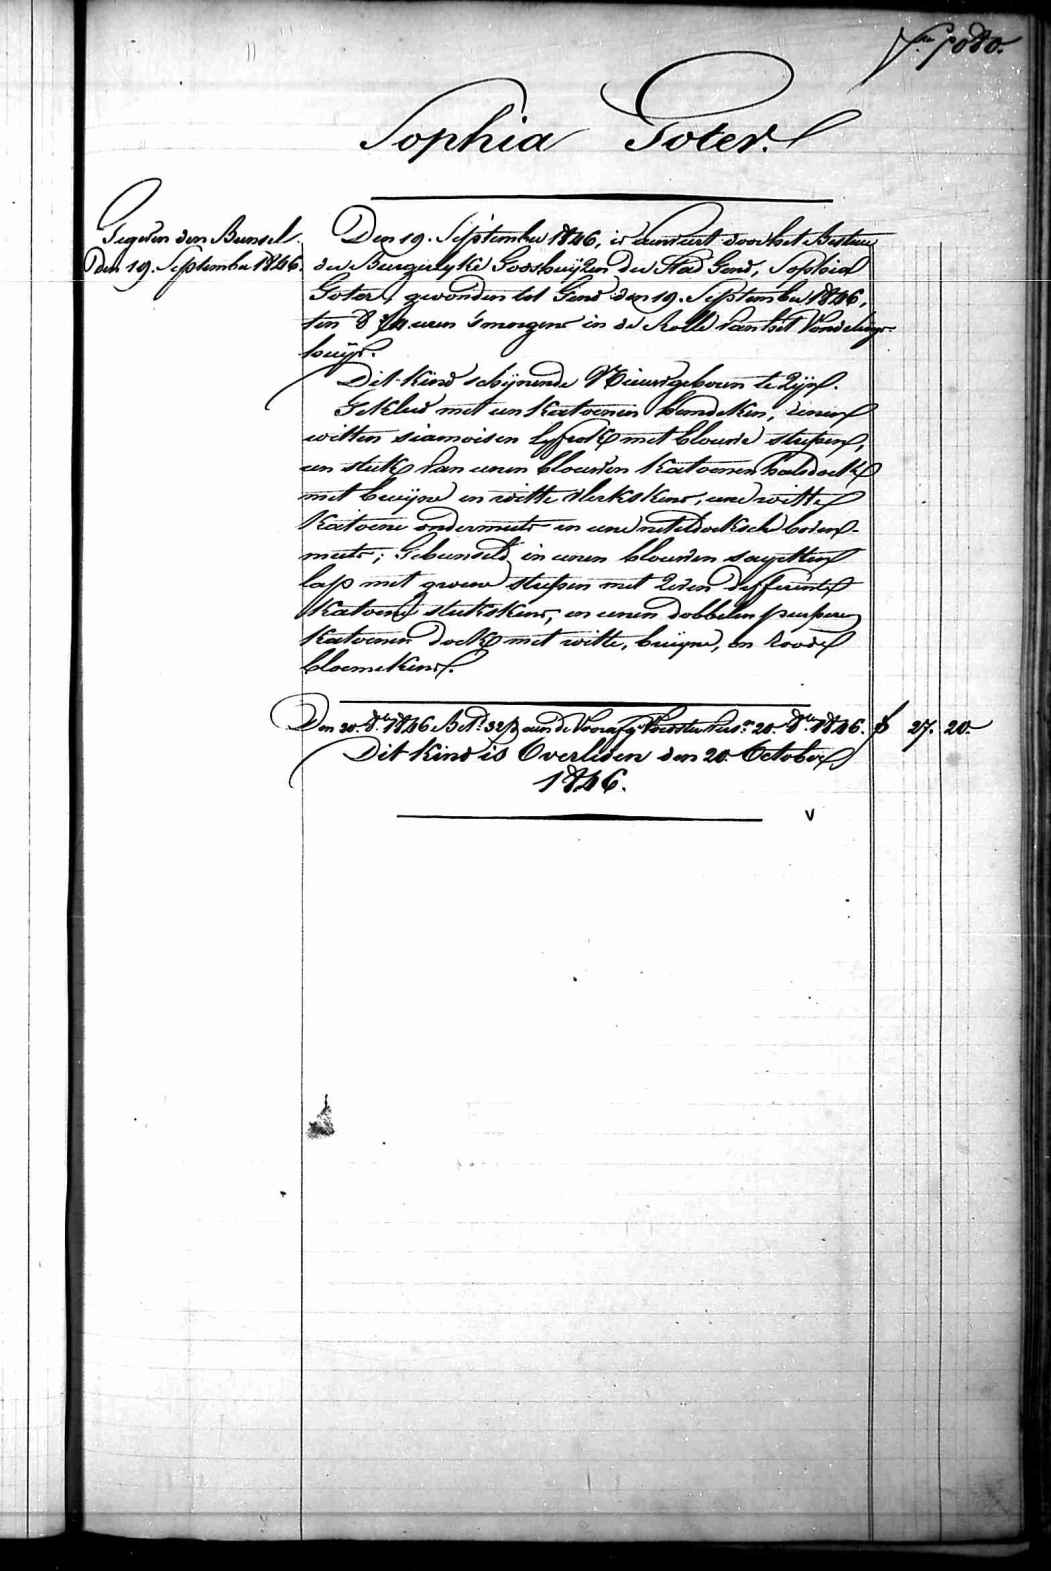 f.º 7080.
Sophia Goter.
Gegeven den Bunsel
den 19. September 1846.
Den 19. September 1846, is aenveert door het Bestuer
der Burgerlyke Godshuijzen der Stad Gend, Sophia
Goter, gevonden tot Gend den 19. September 1846,
ten 8 uren 'smorgens in de Rolle van het Vondelings-
huijs.
Dit kind schijnende Nieuwgeboren te zijn.
Gekleed met een katoenen hemdeken, eenen
witten siamoisen lyfrok met blouwe strepen,
een stuk van eenen blouwen katoenen halsdoek
met bruijne en witte vlekskens, eene witte
katoene ondermuts en eene neteldoeksche boven-
muts; Gebunseld in eenen blouwen sayetten
lap met groene strepen met zeven differente
katoene stukskens, en eenen dobbelen purpere
katoenen doek met witte, bruijne, en roode
bloemekens.
Den 20. 8.ber 1846 Bet.d 32 d. aen de Voorafg. Voedster 20. 8.ber 1846. f 27. 20.
Dit kind is Overleden den 20. October
1846.
v